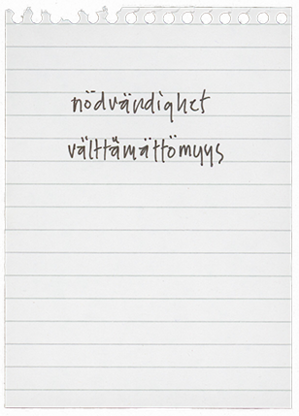 nödvändighet
välttämättömyys